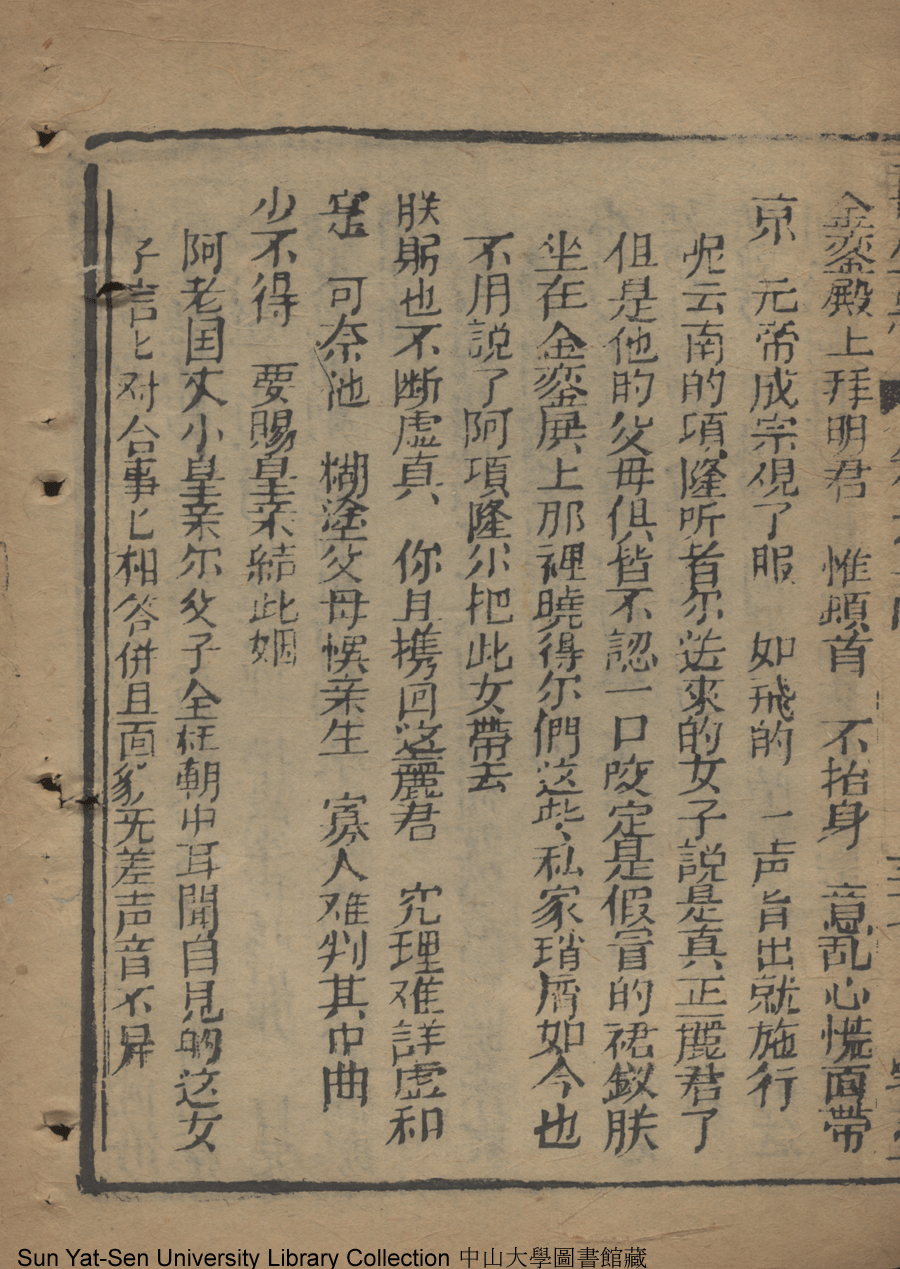 金鑾殿上拜明君　惟頫首　不抬身　意乱心慌面带
京　元帝成宗覌了服　如飛的　一声旨出就施行
呢云南的項隆听着尔送來的女子說是真正麗君了
但是他的父母俱皆不認一口咬定是假冒的裙釵朕
坐在金鑾展上那裡曉得尔們这些私家瑣屑如今也
不用說了阿項隆尔把此女帶去
朕躬也不断虚真　你且携回这麗君　究理难詳虚和
寔　可奈池　糊塗父母悞亲生　寡人难判其中曲
少不得　要賜皇亲結此姻
阿老国丈小皇亲尔父子全在朝中耳聞自見的这女
子言匕对合事匕相答併且面貌无差声音不异
Sun Yat-Sen University Library Collection 中山大學圖書館藏